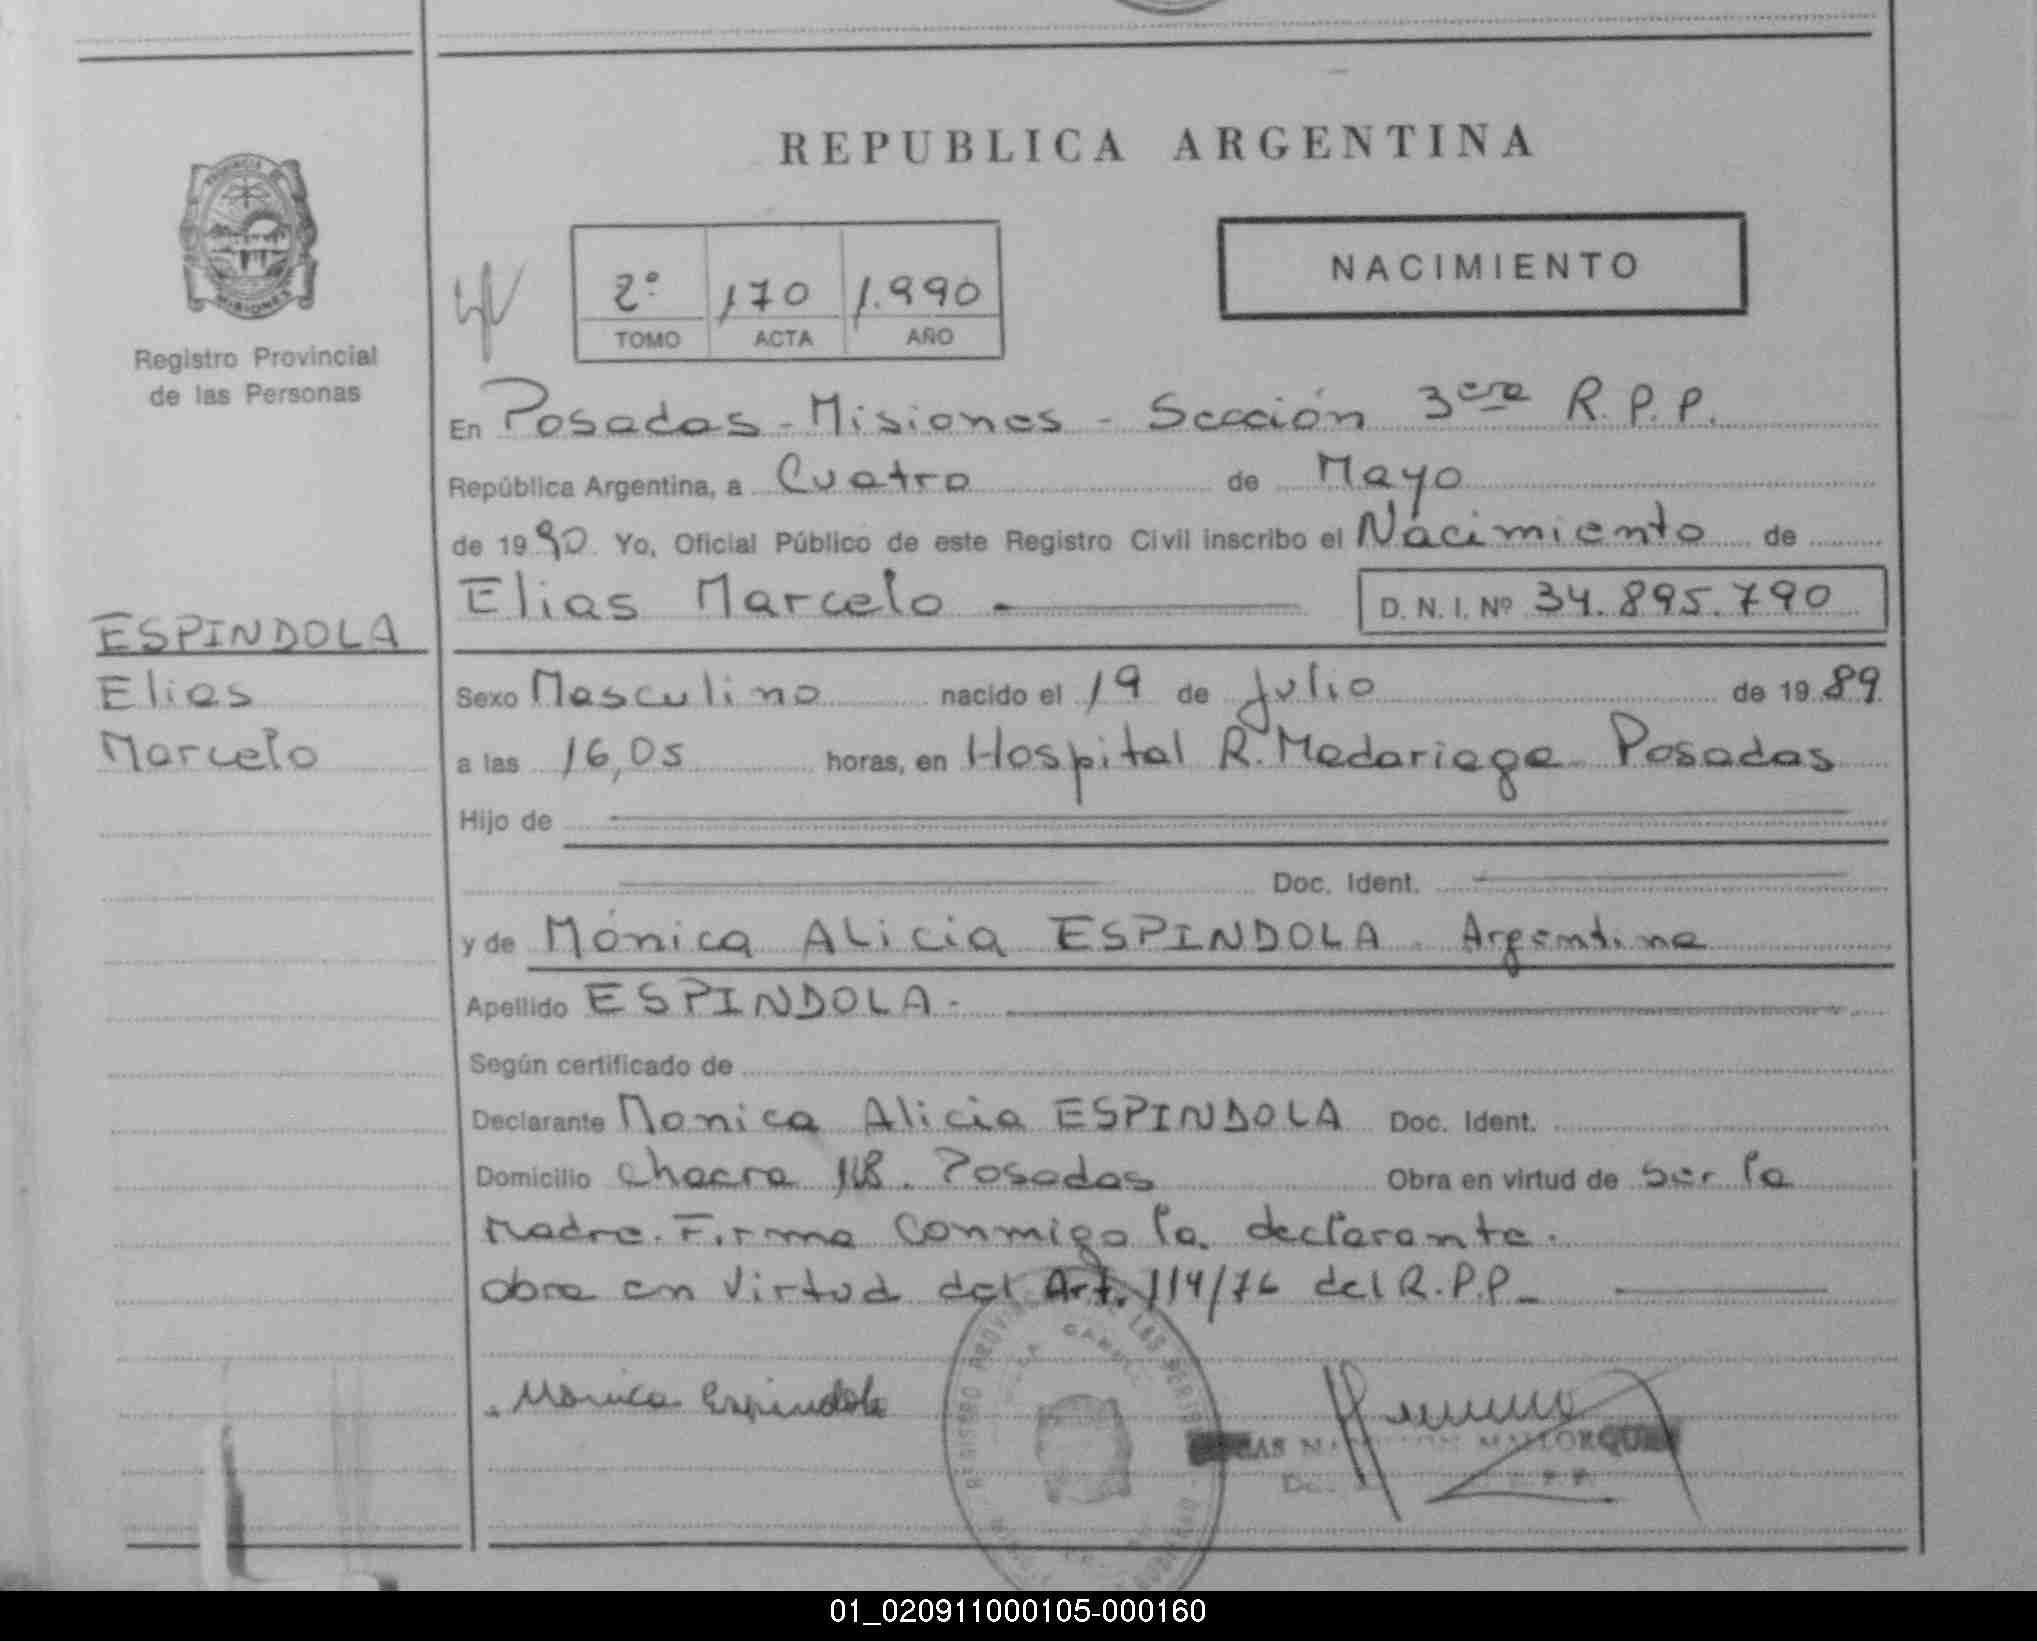 REPUBLICA ARGENTINA
PROVINCIA DE
MISIONES
Registro Provincial
de las Personas
2° 170 1.990
TOMO ACTA AÑO
NACIMIENTO
En Posadas - Misiones - Sección 3era R.P.P.
República Argentina, a Cuatro de Mayo
de 1990 Yo, Oficial Público de este Registro Civil inscribo el Nacimiento de
Elias Marcelo D. N. I. Nº 34.895.790
ESPINDOLA
Elias
Marcelo
Sexo Masculino nacido el 19 de Julio de 1989
a las 16,05 horas, en Hospital R. Madariaga Posadas
Hijo de
Doc. Ident.
y de Mónica Alicia ESPINDOLA. Argentina
Apellido ESPINDOLA.-
Según certificado de
Declarante Monica Alicia ESPINDOLA Doc. Ident.
Domicilio Chacra 118. Posadas Obra en virtud de ser la
Madre. Firma Conmigo la declarante.
obra en Virtud del Art. 114/76 del R.P.P.-
Monica Espindola
REGISTRO LAS PERSO
MALLORQUIN
01_020911000105-000160